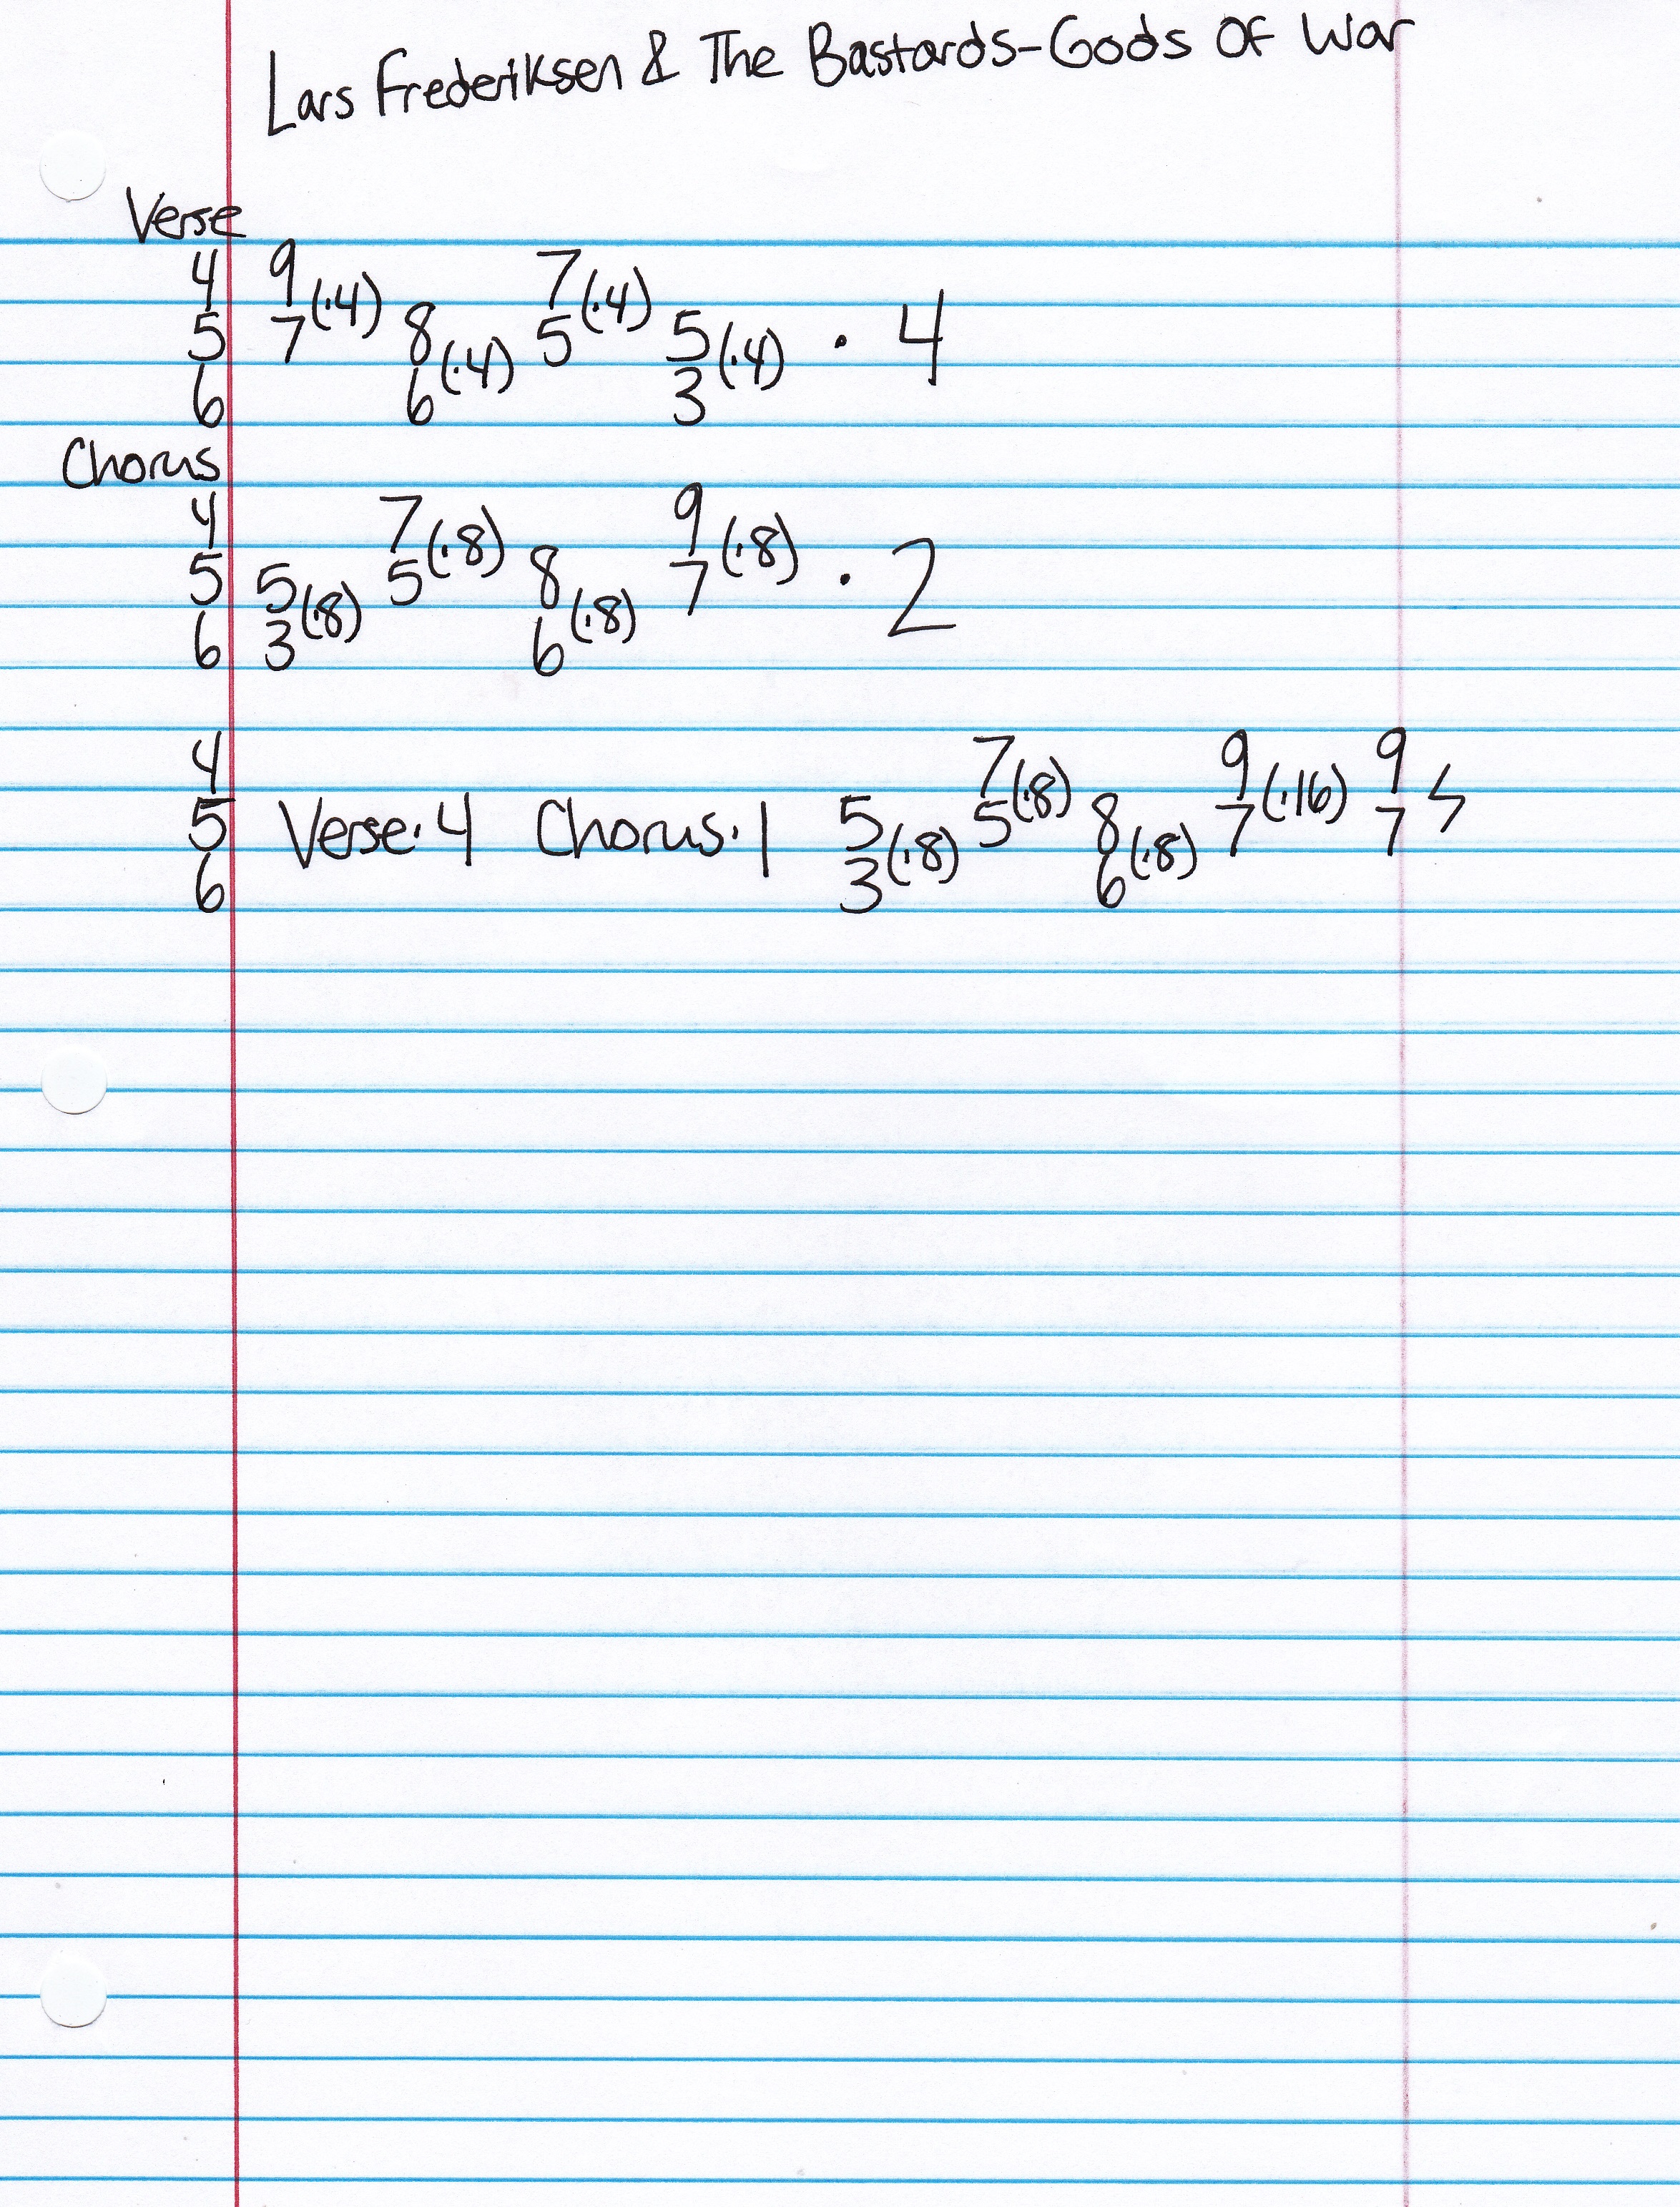 Lars Frederiksen & The Bastards-Gods Of War
Verse
4 9 7
5 7(·4) 8 5(·4) 5 · 4
6 6(·4) 3(·4)
Chorus
4 7 9
5 5 5(·8) 8 7(·8) · 2
6 3(·8) 6(·8)
4 7 9 9
5 Verse·4 Chorus·1 5 5(·8) 8 7(·16) 7 ϟ
6 3(·8) 6(·8)